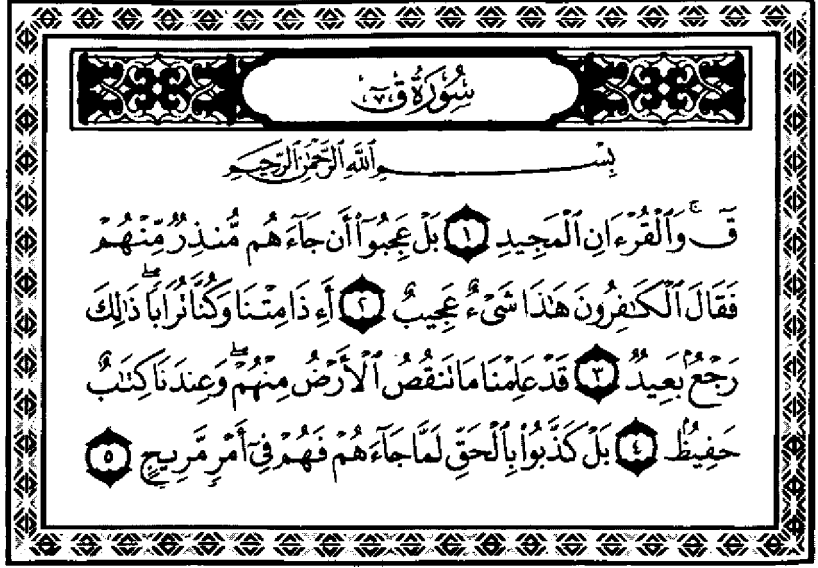 سُورَةُ قٓ
بِسْمِ ٱللَّهِ ٱلرَّحْمَٰنِ ٱلرَّحِيمِ
قٓۚ وَٱلْقُرْءَانِ ٱلْمَجِيدِ ١ بَلْ عَجِبُوٓا۟ أَن جَآءَهُم مُّنذِرٌ مِّنْهُمْ
فَقَالَ ٱلْكَٰفِرُونَ هَٰذَا شَىْءٌ عَجِيبٌ ٢ أَءِذَا مِتْنَا وَكُنَّا تُرَابًاۖ ذَٰلِكَ
رَجْعٌۢ بَعِيدٌ ٣ قَدْ عَلِمْنَا مَا تَنقُصُ ٱلْأَرْضُ مِنْهُمْۖ وَعِندَنَا كِتَٰبٌ
حَفِيظٌۢ ٤ بَلْ كَذَّبُوا۟ بِٱلْحَقِّ لَمَّا جَآءَهُمْ فَهُمْ فِىٓ أَمْرٍ مَّرِيجٍ ٥